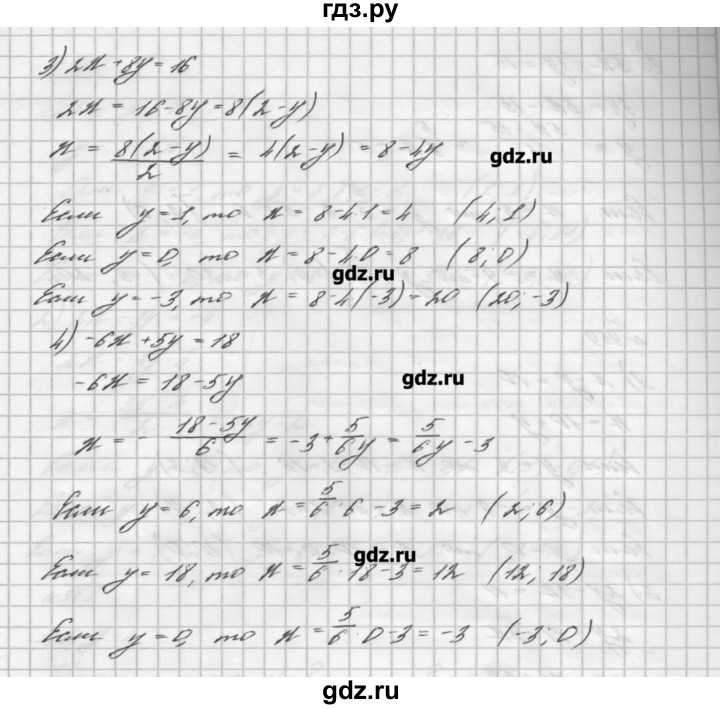 гдз.ру
3) 2x + 8y = 16
2x = 16 - 8y = 8(2 - y)
x = 8(2 - y)/2 = 4(2 - y) = 8 - 4y
gdz.ru
Если y = 1, то x = 8 - 4·1 = 4 (4; 1)
Если y = 0, то x = 8 - 4·0 = 8 (8; 0)
gdz.ru
Если y = -3, то x = 8 - 4(-3) = 20 (20; -3)
4) -6x + 5y = 18
-6x = 18 - 5y
gdz.ru
x = - 18 - 5y/6 = -3 + 5/6y = 5/6y - 3
Если y = 6, то x = 5/6·6 - 3 = 2 (2; 6)
gdz.ru
Если y = 18, то x = 5/6·18 - 3 = 12 (12; 18)
Если y = 0, то x = 5/6·0 - 3 = -3 (-3; 0)
gdz.ru